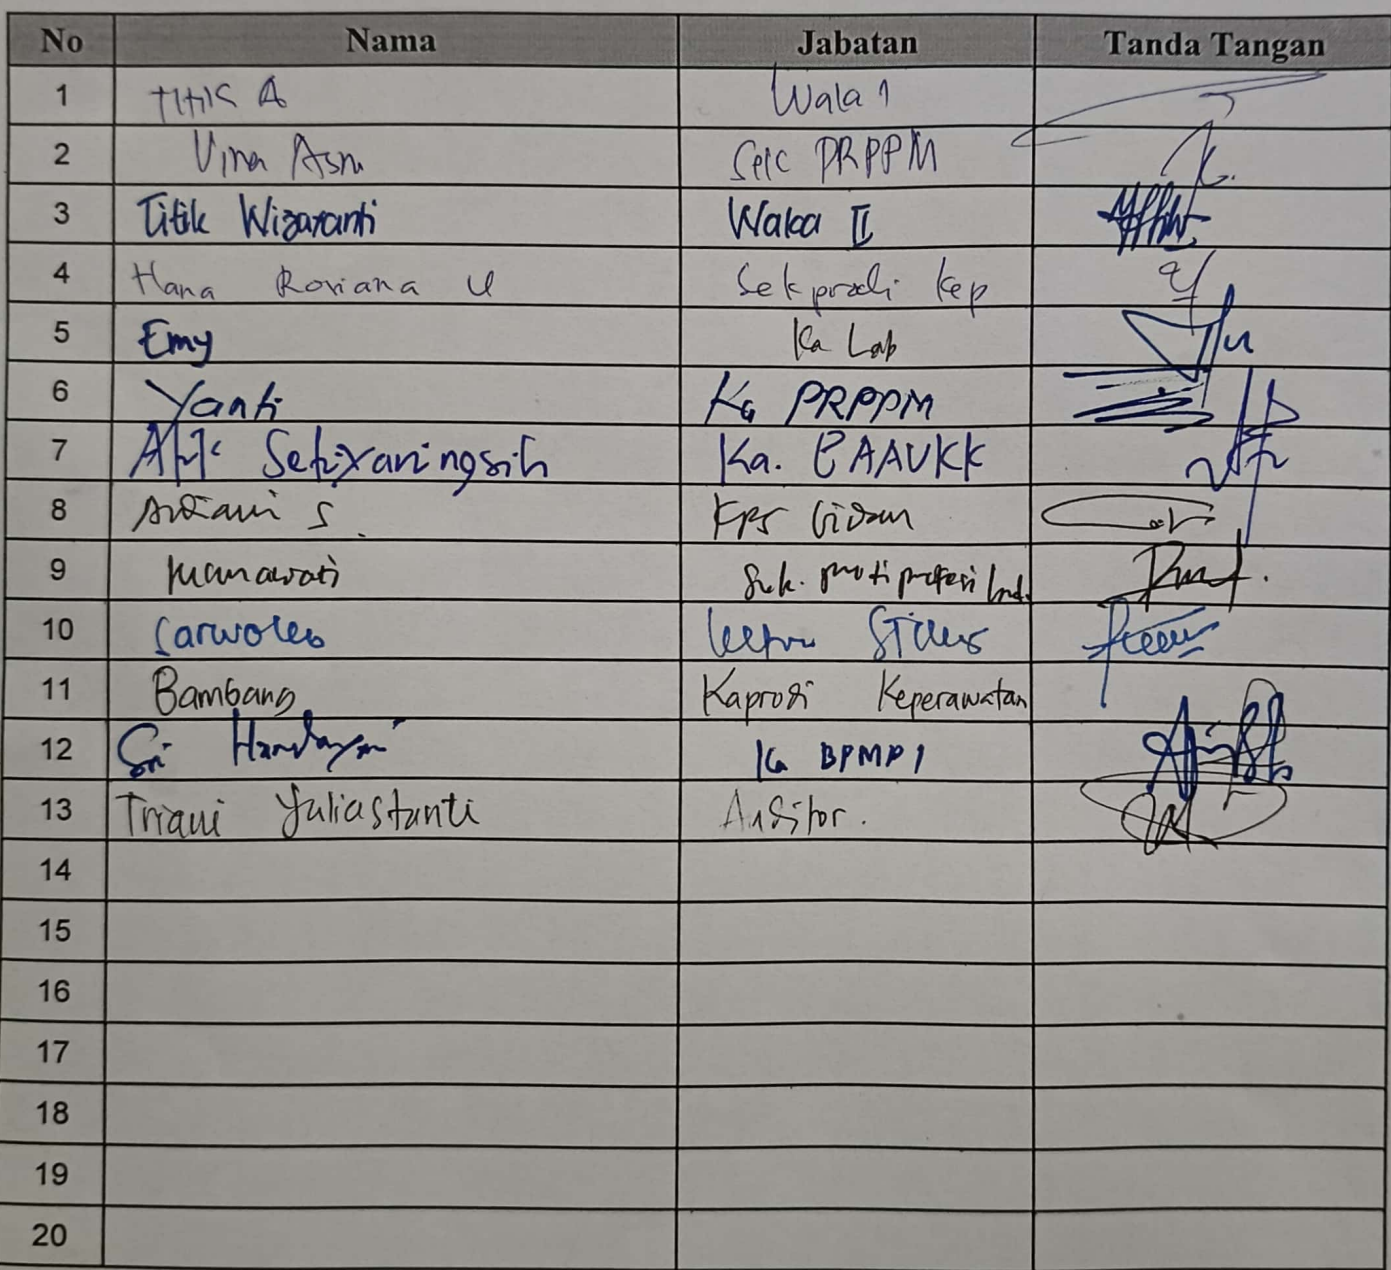 No Nama Jabatan Tanda Tangan
1 Titik A Waka 1
2 Vina Asna Sek PRPPM
3 Titik Wizaranti Waka II
4 Hana Rosiana U Sekprodi Kep
5 Emy Ka Lab
6 Yanti Ka PRPPM
7 Atik Setiyaningsih Ka. BAAUKK
8 Ardiani S. KPS Bidan
9 Sek.
10 Sarwoko
11 Bambang Kaprodi Keperawatan
12 Sri Handayani Ka BPMPI
13 Triani Yuliastanti Auditor.
14
15
16
17
18
19
20